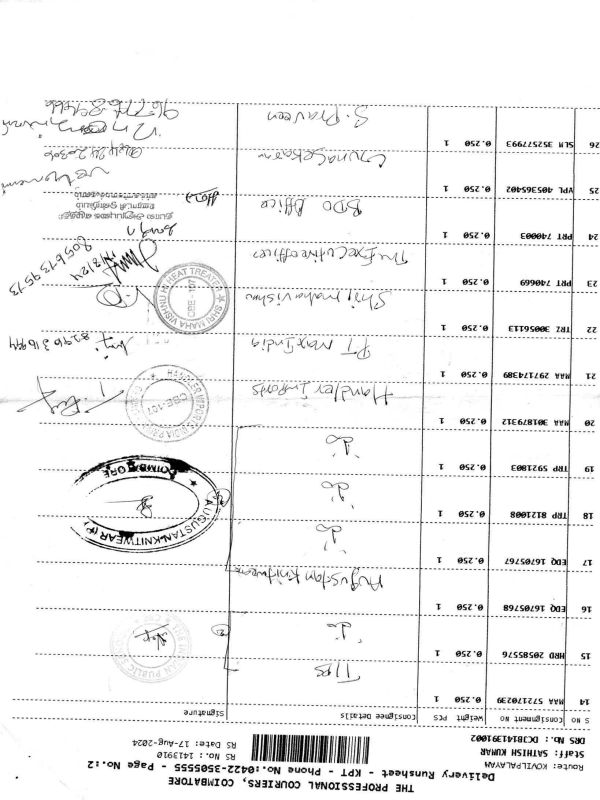 THE PROFESSIONAL COURIERS, COIMBATORE
Delivery Runsheet - KPT - Phone No.:0422-3505555 - Page No.:2
Route: KOVILPALAYAM
Staff: SATHISH KUMAR
DRS No.: DCJB141391002
RS No.: 1413910
RS Date: 17-Aug-2024
S NO Consignment NO Weight PCS Consignee Details Signature
14 MAA 572170239 0.250 1 TIPS
15 HRD 20585576 0.250 1 do
16 EDQ 16705768 0.250 1 Augustan Knitwear
17 EDQ 16705767 0.250 1 do
18 TRP 8121008 0.250 1 do
19 TRP 5921803 0.250 1 do
20 MAA 301879312 0.250 1 Handler Imports
21 MAA 297174389 0.250 1 PT Max India
22 TRZ 30056113 0.250 1 Shri maha vishnu
23 PRT 740669 0.250 1 The Executive officer
24 PRT 740003 0.250 1 BDO Office
25 VPL 405365402 0.250 1 Gunasekaran
26 SLM 352577993 0.250 1 S. Praveen
AUGUSTAN KNITWEAR (P)
COIMBATORE
CBE-107
SHRI MAHA VISHNU HEAT TREATER
8056739573